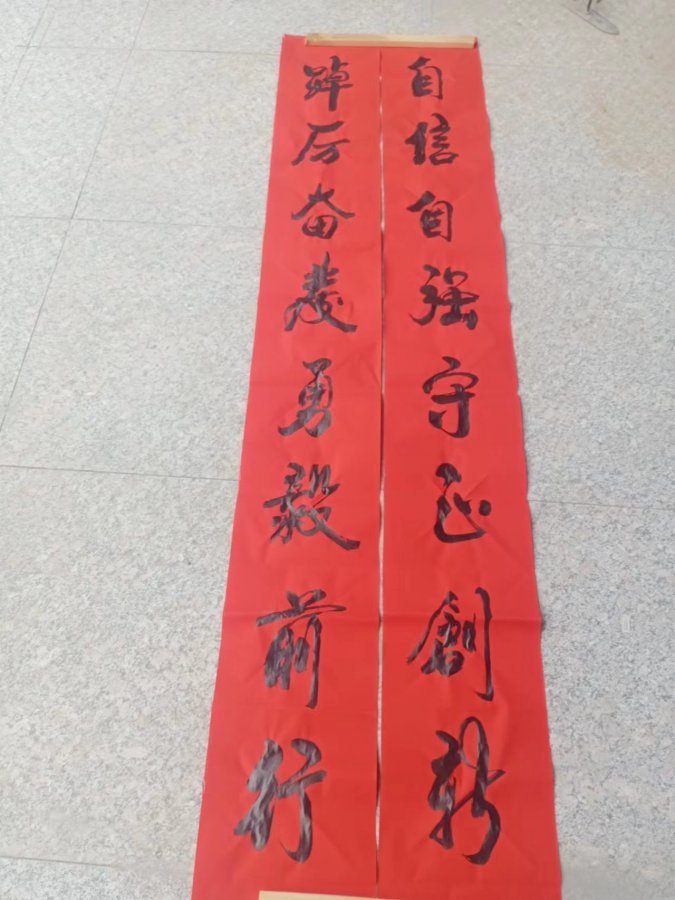 自信自强守正創新
踔厉奋發勇毅前行